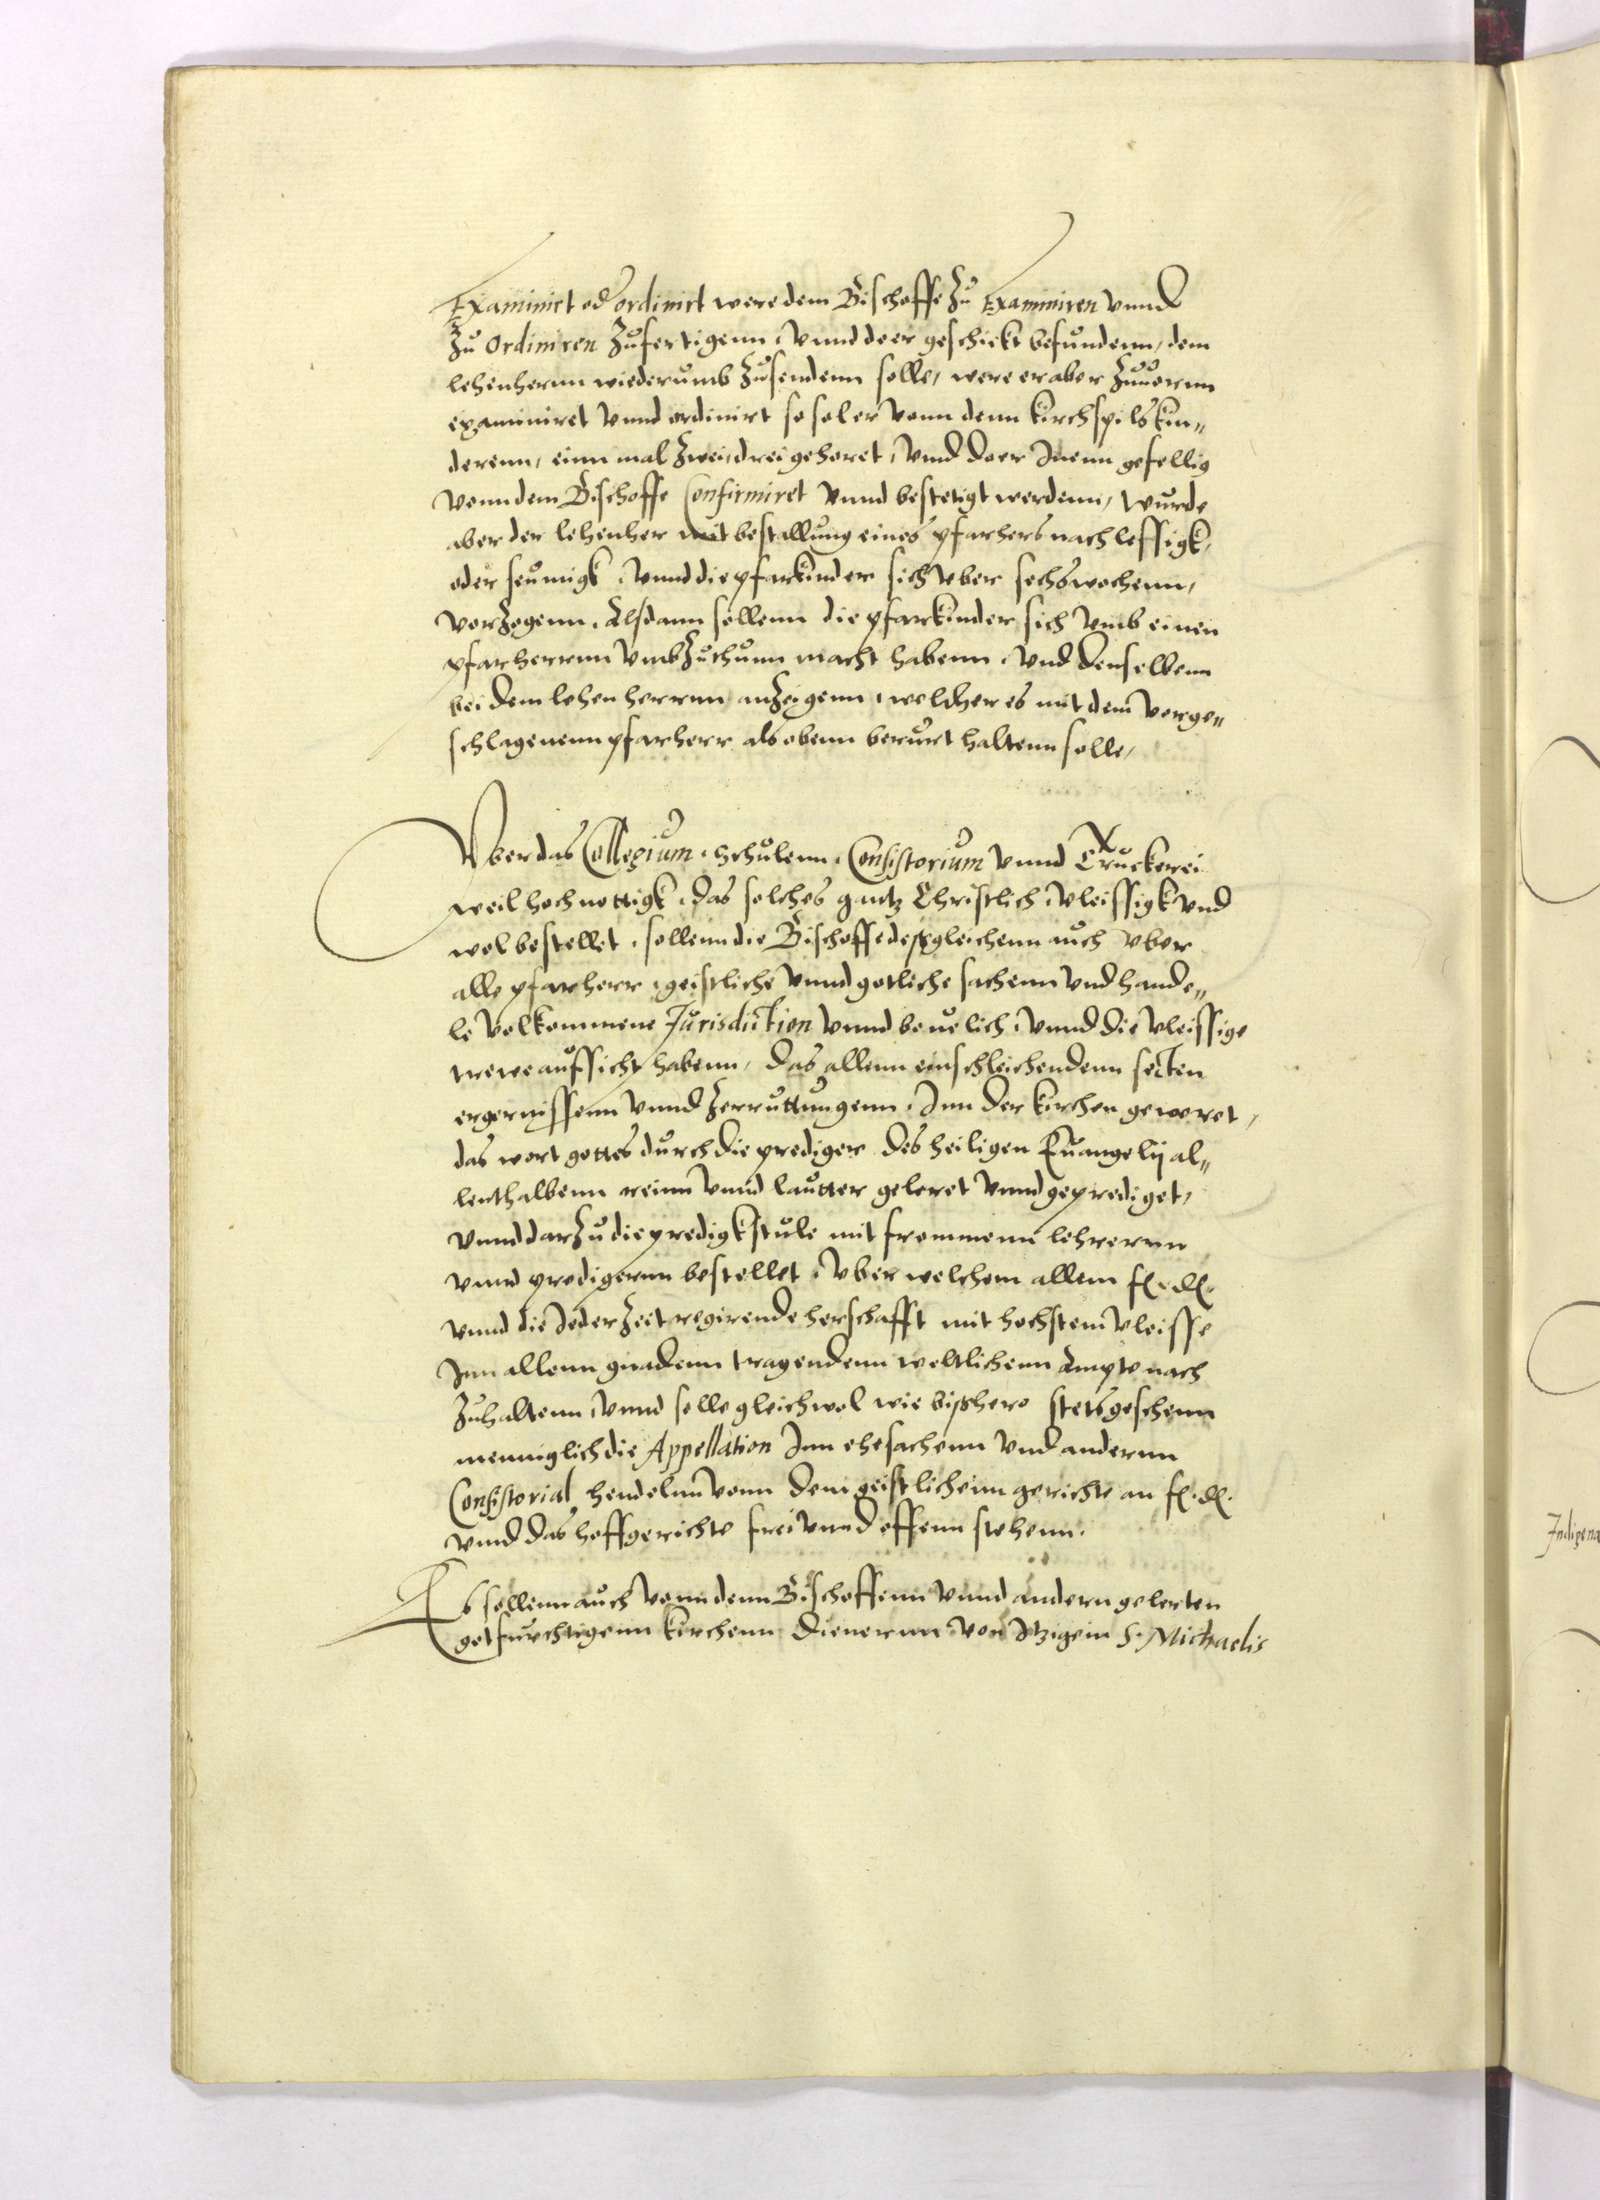 Examinirt od ordinirt were dem Bischoffe zu Examiniren vnnd
zu Ordiniren zufertigenn, vnnd do er geschickt befundenn, dem
lehenhernn wiederumb zusendenn solle, were er aber zuuornn
examiniret vnnd ordinirt so sol er vonn denn kirchspilskin„
derenn, einn mal zwei, drei gehoret, vnnd do er Inenn gefellig
vonn dem Bischoffe Confirmiret vnnd bestetigt werdenn, wurde
aber der lehenher mit bestallung eines pfarhers nachlessigk,
oder seumigk, vnnd die pfarkinder sich vber sechs wochenn,
verzogenn, Alsdann sollenn die pfarkinder sich vmb einen
pfarherrnn vmbzuthunn macht habenn, vnd denselbenn
bei dem lehenherrnn anzeigenn, welcher es mit dem vorge„
schlagenenn pfarherr als obenn berurt haltenn solle,
Vber das Collegium, schulenn, Consistorium vnnd Truckerei
weil hoch nottigk, das solches gantz Christlich, vleissigk vnd
wol bestellet, sollenn die Bischoffe desgleichenn auch vber
alle pfarherr, geistliche vnnd gotliche sachenn vnd hande„
le volkommene Jurisdiction vnnd beuelich, vnnd die vleissige
trewe aufsicht habenn, das allenn einschleichendenn secten
ergernissenn vnnd zerruttungenn, Inn der kirchen geweret,
das wort gottes durch die prediger des heiligen Euangelij al„
lenthalbenn reinn vnnd lautter geleret vnnd geprediget,
vnnd darzu die predigkstule mit frommenn lehrernn
vnnd predigernn bestellet, vber welchem allem f. d.
vnnd die Jeder zeit regirende herschafft mit hochstem vleisse
Inn allenn gnadenn tragendenn weltlichenn Ampte nach
zuhaltenn, vnnd solle gleichwol wie bishero stets geschenn
menniglich die Appellation Inn ehesachenn vnd andernn
Consistorial hendelnn vonn dem geistlichenn gerichte an f. d.
vnnd das hoffgerichte frei vnnd offenn stehenn.
Es sollenn auch vonn denn Bischoffenn vnnd andern gelerten
gotfurchtigenn kirchenn dienernn vor Itzigem S. Michaelis
Indigena